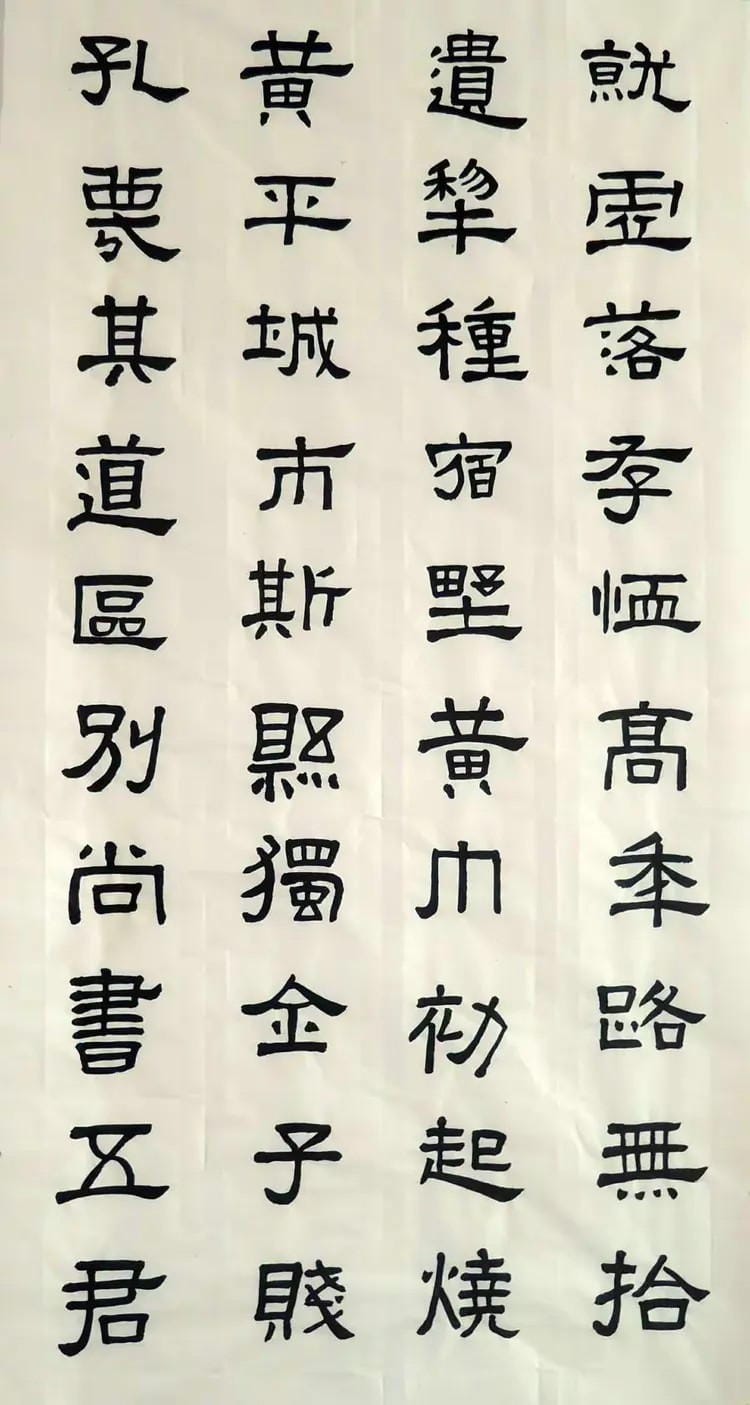 就虛落存恤高年路無拾
遺犁種宿野黃巾初起燒
黃平城市斯縣獨全子賤
孔蔑其道區別尚書五君